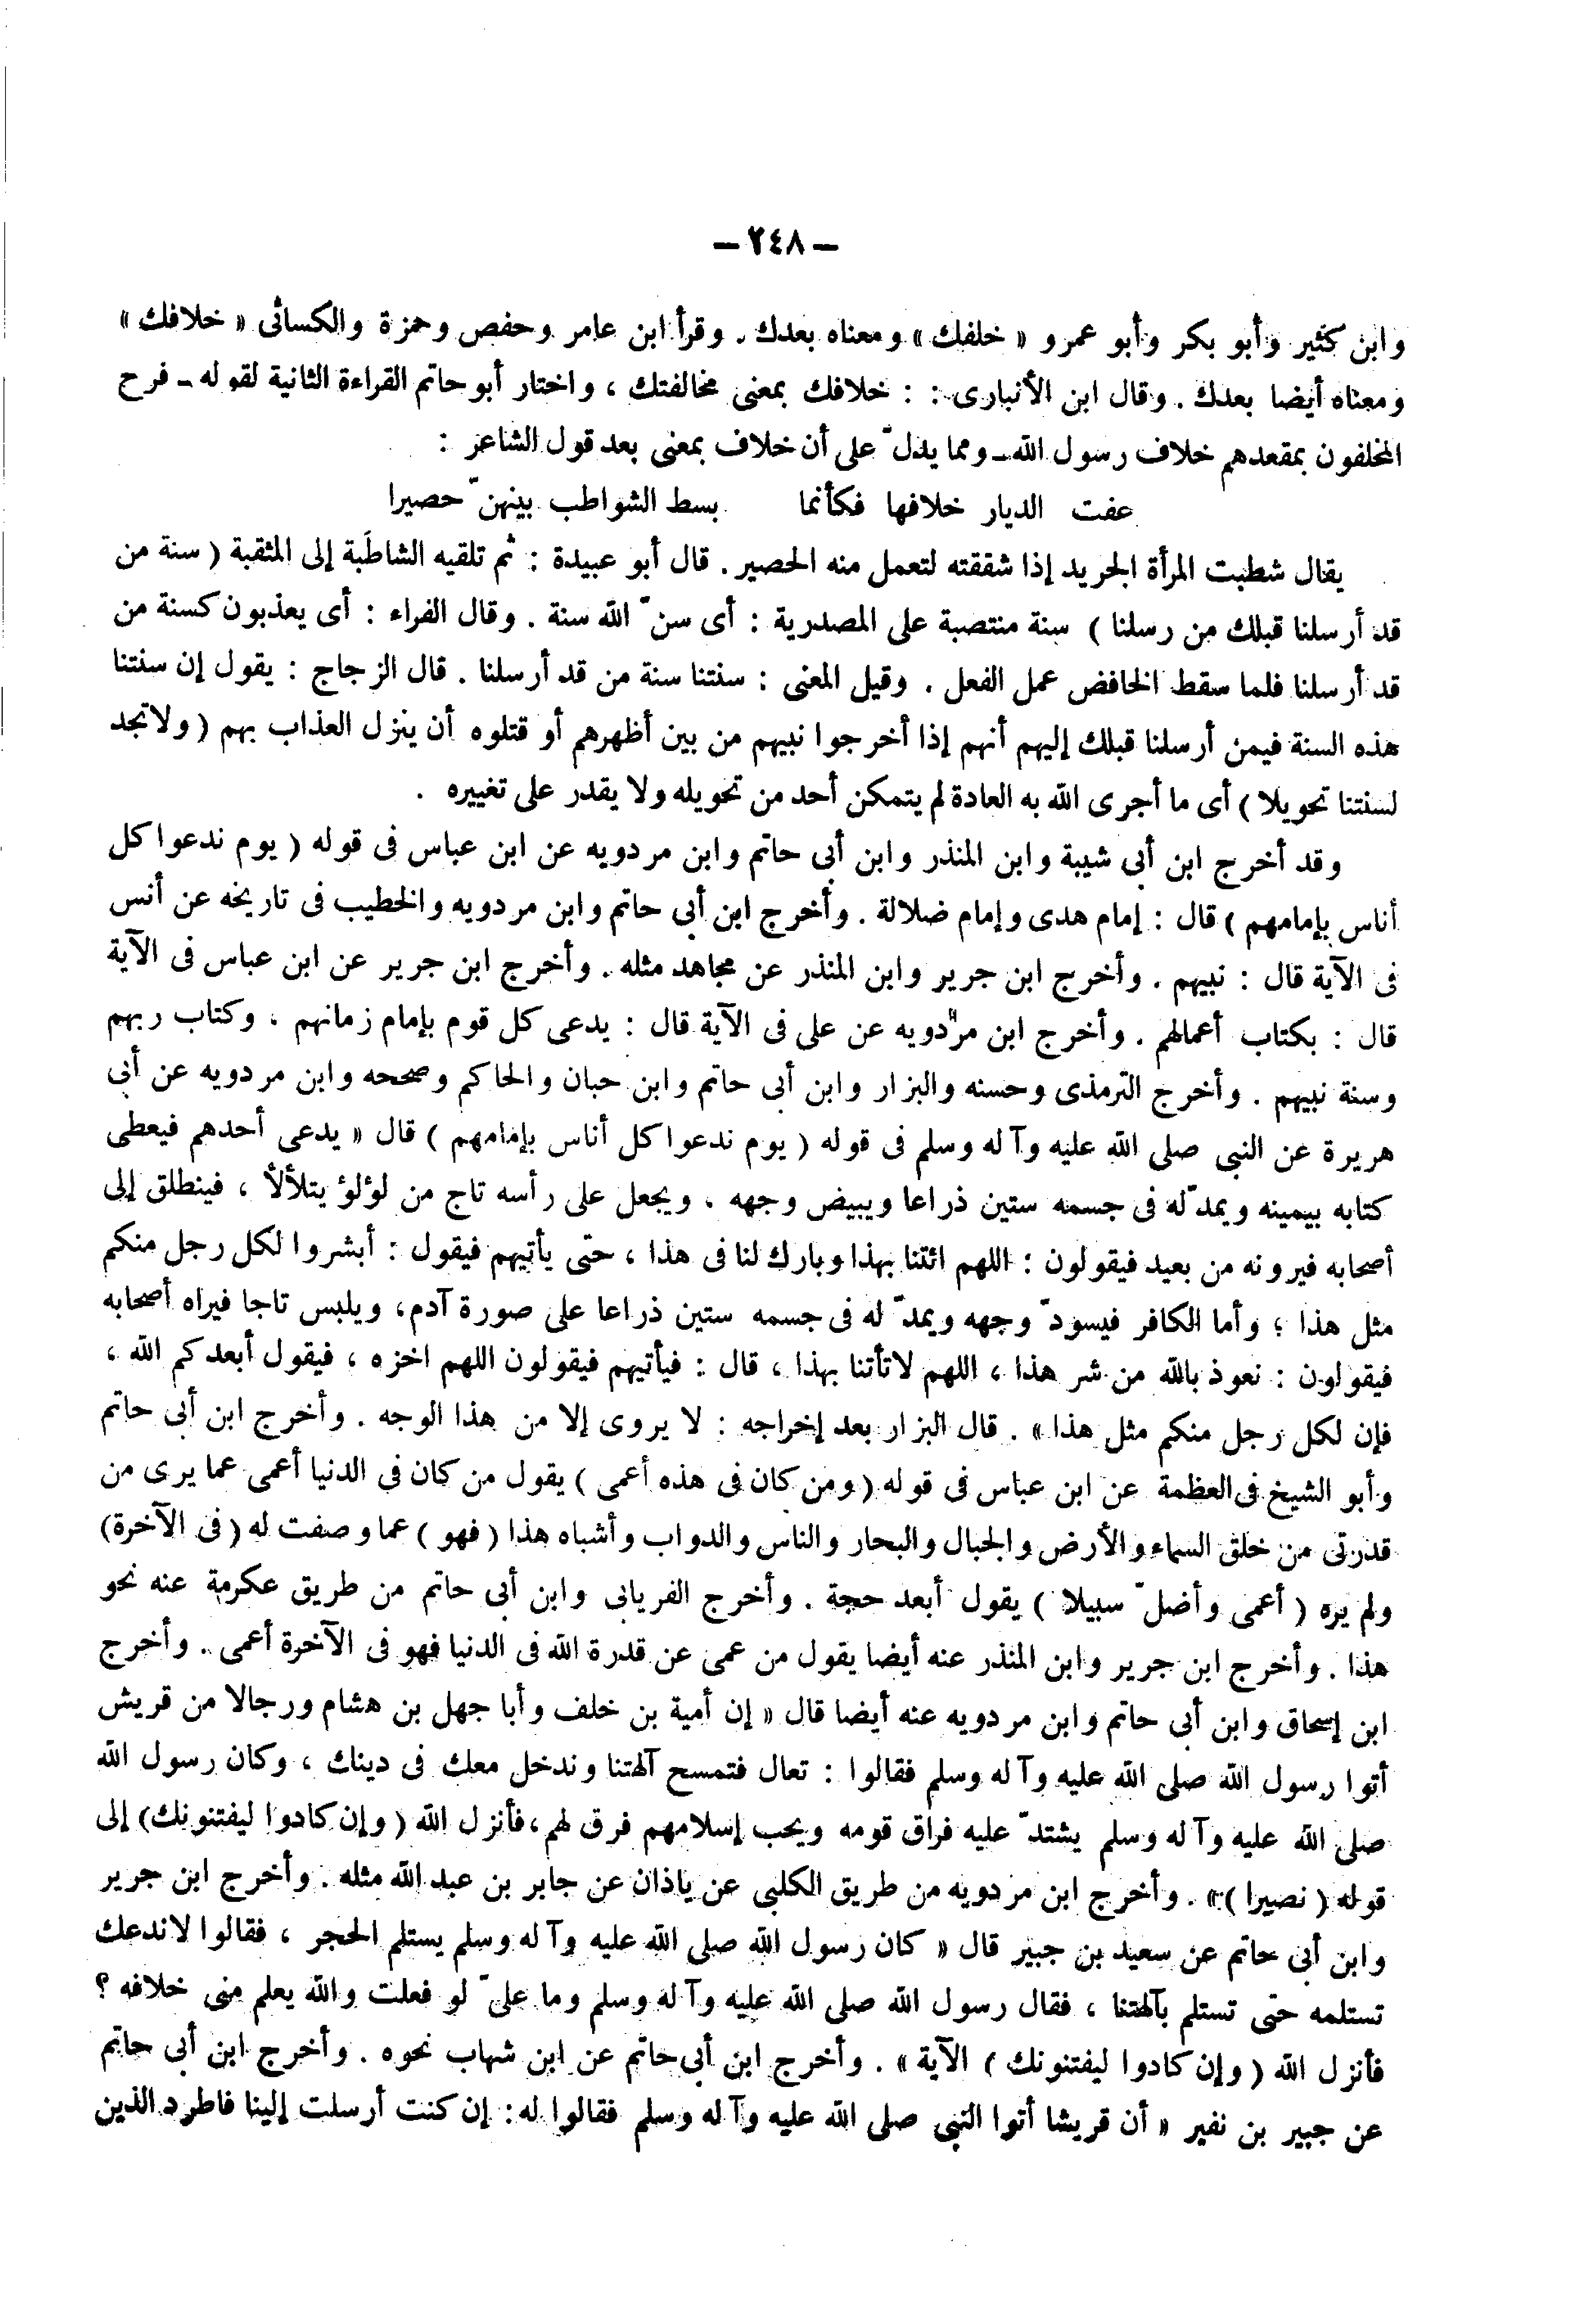 — ٢٤٨ —
وابن كثير وأبو بكر وأبو عمرو « خلفك » ومعناه بعدك . وقرأ ابن عامر وحفص وحمزة والكسائى « خلافك »
ومعناه أيضا بعدك . وقال ابن الأنبارى : : خلافك بمعنى مخالفتك ، واختار أبو حاتم القراءة الثانية لقوله ـ فرح
المخلفون بمقعدهم خلاف رسول الله ـ ومما يدلّ على أن خلاف بمعنى بعد قول الشاعر :
عفت الديار خلافها فكأنما بسط الشواطب بينهنّ حصيرا
يقال شطبت المرأة الجريد إذا شققته لتعمل منه الحصير . قال أبو عبيدة : ثم تلقيه الشاطبة إلى المثقبة ( سنة من
قد أرسلنا قبلك من رسلنا ) سنة منتصبة على المصدرية : أى سنّ الله سنة . وقال الفراء : أى يعذبون كسنة من
قد أرسلنا فلما سقط الخافض عمل الفعل . وقيل المعنى : سنتنا سنة من قد أرسلنا . قال الزجاج : يقول إن سنتنا
هذه السنة فيمن أرسلنا قبلك إليهم أنهم إذا أخرجوا نبيهم من بين أظهرهم أو قتلوه أن ينزل العذاب بهم ( ولا تجد
لسنتنا تحويلا ) أى ما أجرى الله به العادة لم يتمكن أحد من تحويله ولا يقدر على تغييره .
وقد أخرج ابن أبى شيبة وابن المنذر وابن أبى حاتم وابن مردويه عن ابن عباس فى قوله ( يوم ندعوا كل
أناس بإمامهم ) قال : إمام هدى وإمام ضلالة . وأخرج ابن أبى حاتم وابن مردويه والخطيب فى تاريخه عن أنس
فى الآية قال : نبيهم . وأخرج ابن جرير وابن المنذر عن مجاهد مثله . وأخرج ابن جرير عن ابن عباس فى الآية
قال : بكتاب أعمالهم . وأخرج ابن مردويه عن على فى الآية قال : يدعى كل قوم بإمام زمانهم ، وكتاب ربهم
وسنة نبيهم . وأخرج الترمذى وحسنه والبزار وابن أبى حاتم وابن حبان والحاكم وصححه وابن مردويه عن أبى
هريرة عن النبى صلى الله عليه وآله وسلم فى قوله ( يوم ندعوا كل أناس بإمامهم ) قال « يدعى أحدهم فيعطى
كتابه بيمينه ويمدّ له فى جسمه ستين ذراعا ويبيض وجهه ، ويجعل على رأسه تاج من لؤلؤ يتلألأ ، فينطلق إلى
أصحابه فيرونه من بعيد فيقولون : اللهم ائتنا بهذا وبارك لنا فى هذا ، حتى يأتيهم فيقول : أبشروا لكل رجل منكم
مثل هذا ؛ وأما الكافر فيسودّ وجهه ويمدّ له فى جسمه ستين ذراعا على صورة آدم ، ويلبس تاجا فيراه أصحابه
فيقولون : نعوذ بالله من شر هذا ، اللهم لا تأتنا بهذا ، قال : فيأتيهم فيقولون اللهم اخزه ، فيقول أبعدكم الله ،
فإن لكل رجل منكم مثل هذا » . قال البزار بعد إخراجه : لا يروى إلا من هذا الوجه . وأخرج ابن أبى حاتم
وأبو الشيخ فى العظمة عن ابن عباس فى قوله ( ومن كان فى هذه أعمى ) يقول من كان فى الدنيا أعمى عما يرى من
قدرتى من خلق السماء والأرض والجبال والبحار والناس والدواب وأشباه هذا ( فهو ) عما وصفت له ( فى الآخرة )
ولم يره ( أعمى وأضلّ سبيلا ) يقول أبعد حجة . وأخرج الفريابى وابن أبى حاتم من طريق عكرمة عنه نحو
هذا . وأخرج ابن جرير وابن المنذر عنه أيضا يقول من عمى عن قدرة الله فى الدنيا فهو فى الآخرة أعمى . وأخرج
ابن إسحاق وابن أبى حاتم وابن مردويه عنه أيضا قال « إن أمية بن خلف وأبا جهل بن هشام ورجالا من قريش
أتوا رسول الله صلى الله عليه وآله وسلم فقالوا : تعال فتمسح آلهتنا وندخل معك فى دينك ، وكان رسول الله
صلى الله عليه وآله وسلم يشتدّ عليه فراق قومه ويحب إسلامهم فرق لهم ، فأنزل الله ( وإن كادوا ليفتنونك ) إلى
قوله ( نصيرا ) » . وأخرج ابن مردويه من طريق الكلبى عن باذان عن جابر بن عبد الله مثله . وأخرج ابن جرير
وابن أبى حاتم عن سعيد بن جبير قال « كان رسول الله صلى الله عليه وآله وسلم يستلم الحجر ، فقالوا لا ندعك
تستلمه حتى تستلم بآلهتنا ، فقال رسول الله صلى الله عليه وآله وسلم وما علىّ لو فعلت والله يعلم منى خلافه ؟
فأنزل الله ( وإن كادوا ليفتنونك ) الآية » . وأخرج ابن أبى حاتم عن ابن شهاب نحوه . وأخرج ابن أبى حاتم
عن جبير بن نفير « أن قريشا أتوا النبى صلى الله عليه وآله وسلم فقالوا له : إن كنت أرسلت إلينا فاطرد الذين